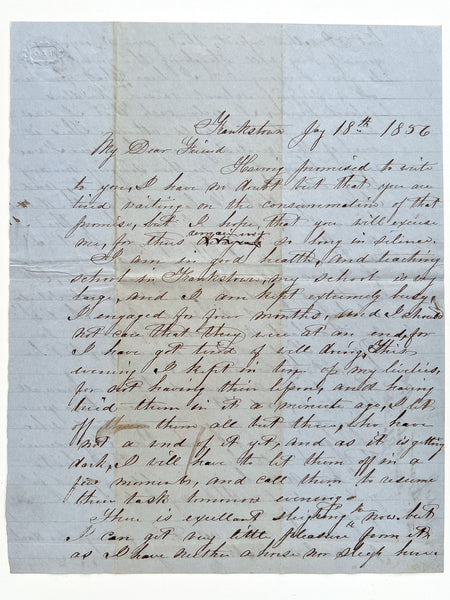 Frankstown Jay 18th 1856
My Dear Friend
Having promised to write
to you, I have no doubt but that you are
tired waiting on the consummation of that
promise, but I hope that you will excuse
me, for thus remaining so long in silence.
I am in good health, and teaching
school in Frankstown, my school is very
large, and I am kept extremely busy,
I engaged for four months, and I should
not care that they were at an end, for
I have got tired of
evening I kept in of my
for not having their lesson, and having
tried them in it a minute ago, I let
off them all but three, who have
not a end of it yet, and as it is getting
dark, I will have to let them off in a
few moments, and call them to resume
their task tomorrow evening.
There is excellent sleighing now but
I can get very little "pleasure" form it,
as I have neither a horse nor sleigh here.